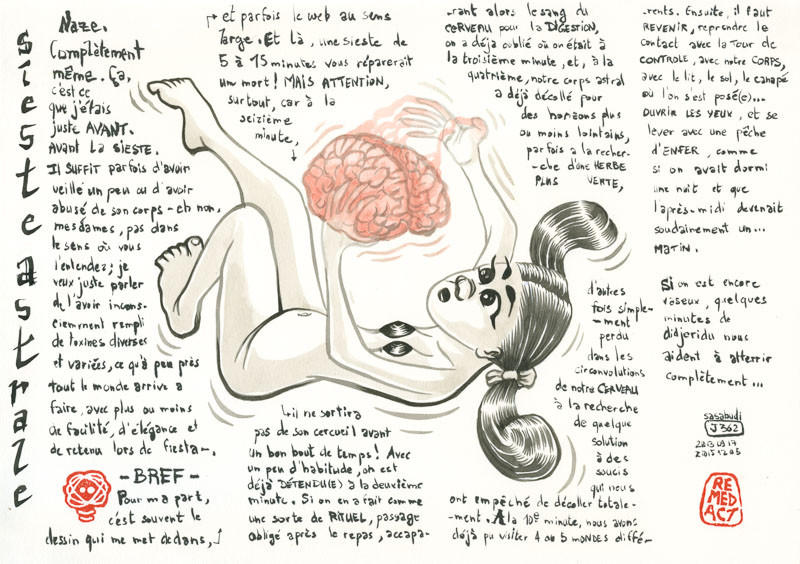 sieste astrale
Naze.
Complètement
même. Ça,
c'est ce
que j'étais
juste AVANT.
Avant LA SIESTE.
Il SUFFIT parfois d'avoir
veillé un peu ou d'avoir
abusé de son corps - eh non,
mesdames, pas dans
le sens où vous
l'entendez; je
veux juste parler
de l'avoir incons-
ciemment rempli
de toxines diverses
et variées, ce qu'à peu près
tout le monde arrive à
faire, avec plus ou moins
de facilité, d'élégance et
de retenu lors de fiesta-.
- BREF -
Pour ma part,
c'est souvent le
dessin qui me met dedans,
et parfois le web au sens
large. Et là, une sieste de
5 à 15 minutes vous réparerait
un mort! MAIS ATTENTION,
surtout, car à la
seizième
minute,
il ne sortira
pas de son cercueil avant
un bon bout de temps! Avec
un peu d'habitude, on est
déjà DÉTENDU(E) à la deuxième
minute. Si on en a fait comme
une sorte de RITUEL, passage
obligé après le repas, accapa-
-rant alors le sang du
CERVEAU pour la DIGESTION,
on a déjà oublié où on était à
la troisième minute, et, à la
quatrième, notre corps astral
a déjà décollé pour
des horizons plus
ou moins lointains,
parfois à la recher-
-che d'une HERBE
PLUS VERTE,
d'autres
fois simple-
-ment
perdu
dans les
circonvolutions
de notre CERVEAU
à la recherche
de quelque
solution
à des
soucis
qui nous
ont empêché de décoller totale-
-ment. À la 10e minute, nous avons
déjà pu visiter 4 ou 5 MONDES diffé-
-rents. Ensuite, il faut
REVENIR, reprendre le
contact avec la Tour de
CONTROLE, avec notre CORPS,
avec le lit, le sol, le canapé
où l'on s'est posé(e)...
OUVRIR LES YEUX, et se
lever avec une pêche
d'ENFER, comme
si on avait dormi
une nuit et que
l'après-midi devenait
soudainement un...
MATIN.
Si on est encore
vaseux, quelques
minutes de
didjeridu nous
aident à atterrir
complètement...
sasabudi
J362
2013 09 17
2015 12 05
RE
MED
ACT